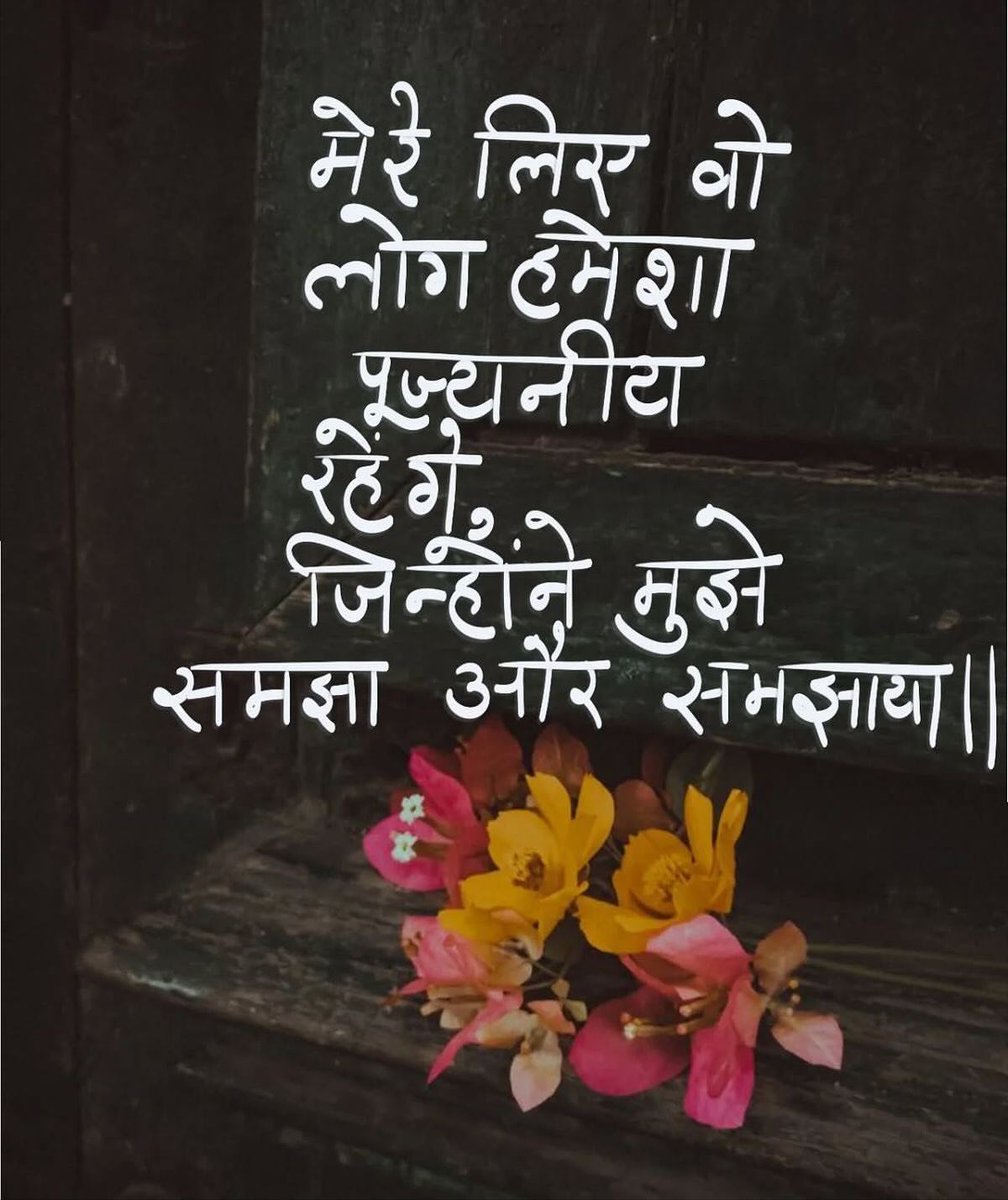 मेरे लिए वो
लोग हमेशा
पूज्यनीय
रहेंगे
जिन्होंने मुझे
समझा और समझाया||